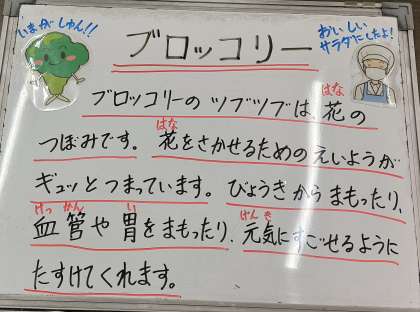 いまがしゅん!!
ブロッコリー
おいしい
サラダにしたよ!
はな
ブロッコリーの ツブツブは、花の
はな
つぼみです。花をさかせるための えいようが
ギュッと つまっています。びょうきから まもったり、
けっかん い げんき
血管や 胃をまもったり、元気にすごせるように
たすけてくれます。